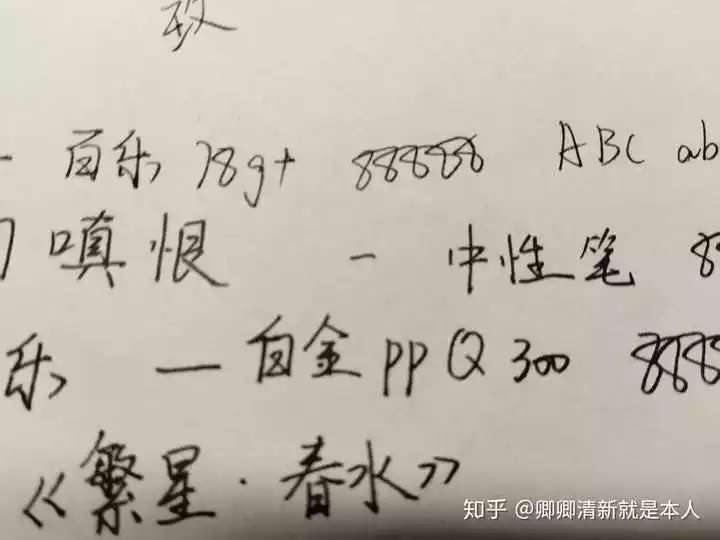 一 百乐 78g+ 88888 ABC ab
嗔恨 一 中性笔 8
乐 — 白金 ppQ 300 888
《繁星·春水》
知乎 @卿卿清新就是本人